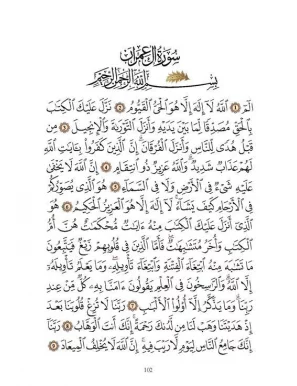 سورة ال عمران
بسم الله الرحمن الرحيم
الٓمٓ ۝١ ٱللَّهُ لَآ إِلَٰهَ إِلَّا هُوَ ٱلْحَىُّ ٱلْقَيُّومُ ۝٢ نَزَّلَ عَلَيْكَ ٱلْكِتَٰبَ
بِٱلْحَقِّ مُصَدِّقًا لِّمَا بَيْنَ يَدَيْهِ وَأَنزَلَ ٱلتَّوْرَىٰةَ وَٱلْإِنجِيلَ ۝٣ مِن
قَبْلُ هُدًى لِّلنَّاسِ وَأَنزَلَ ٱلْفُرْقَانَ إِنَّ ٱلَّذِينَ كَفَرُوا۟ بِـَٔايَٰتِ ٱللَّهِ
لَهُمْ عَذَابٌ شَدِيدٌ وَٱللَّهُ عَزِيزٌ ذُو ٱنتِقَامٍ ۝٤ إِنَّ ٱللَّهَ لَا يَخْفَىٰ
عَلَيْهِ شَىْءٌ فِى ٱلْأَرْضِ وَلَا فِى ٱلسَّمَآءِ ۝٥ هُوَ ٱلَّذِى يُصَوِّرُكُمْ
فِى ٱلْأَرْحَامِ كَيْفَ يَشَآءُ لَآ إِلَٰهَ إِلَّا هُوَ ٱلْعَزِيزُ ٱلْحَكِيمُ ۝٦ هُوَ
ٱلَّذِىٓ أَنزَلَ عَلَيْكَ ٱلْكِتَٰبَ مِنْهُ ءَايَٰتٌ مُّحْكَمَٰتٌ هُنَّ أُمُّ
ٱلْكِتَٰبِ وَأُخَرُ مُتَشَٰبِهَٰتٌ فَأَمَّا ٱلَّذِينَ فِى قُلُوبِهِمْ زَيْغٌ فَيَتَّبِعُونَ
مَا تَشَٰبَهَ مِنْهُ ٱبْتِغَآءَ ٱلْفِتْنَةِ وَٱبْتِغَآءَ تَأْوِيلِهِۦ وَمَا يَعْلَمُ تَأْوِيلَهُۥٓ
إِلَّا ٱللَّهُ وَٱلرَّٰسِخُونَ فِى ٱلْعِلْمِ يَقُولُونَ ءَامَنَّا بِهِۦ كُلٌّ مِّنْ عِندِ
رَبِّنَا وَمَا يَذَّكَّرُ إِلَّآ أُو۟لُوا۟ ٱلْأَلْبَٰبِ ۝٧ رَبَّنَا لَا تُزِغْ قُلُوبَنَا بَعْدَ
إِذْ هَدَيْتَنَا وَهَبْ لَنَا مِن لَّدُنكَ رَحْمَةً إِنَّكَ أَنتَ ٱلْوَهَّابُ ۝٨ رَبَّنَآ
إِنَّكَ جَامِعُ ٱلنَّاسِ لِيَوْمٍ لَّا رَيْبَ فِيهِ إِنَّ ٱللَّهَ لَا يُخْلِفُ ٱلْمِيعَادَ ۝٩
102